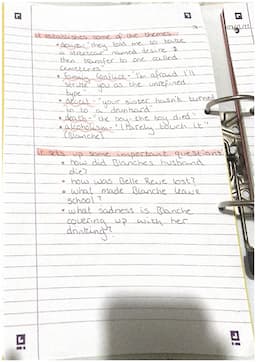 it establishes some of the themes
• desire - "they told me to take
a streetcar named desire &
then transfer to one called
cemeteries"
• - "I'm afraid I'll
strike you as the unrefined
type"
• - "your sister hasn't turned
in to a drunkard"
• death - "the boy - the boy died"
• alcoholism - "I rarely touch it"
(Blanche)
it sets up some important questions
• how did Blanche's husband
die?
• how was Belle Reve lost?
• what made Blanche leave
school?
• what sadness is Blanche
covering up with her
drinking?